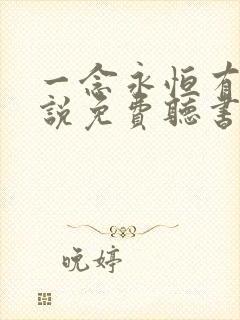 一念永恒有
説免費聽書
晚婷